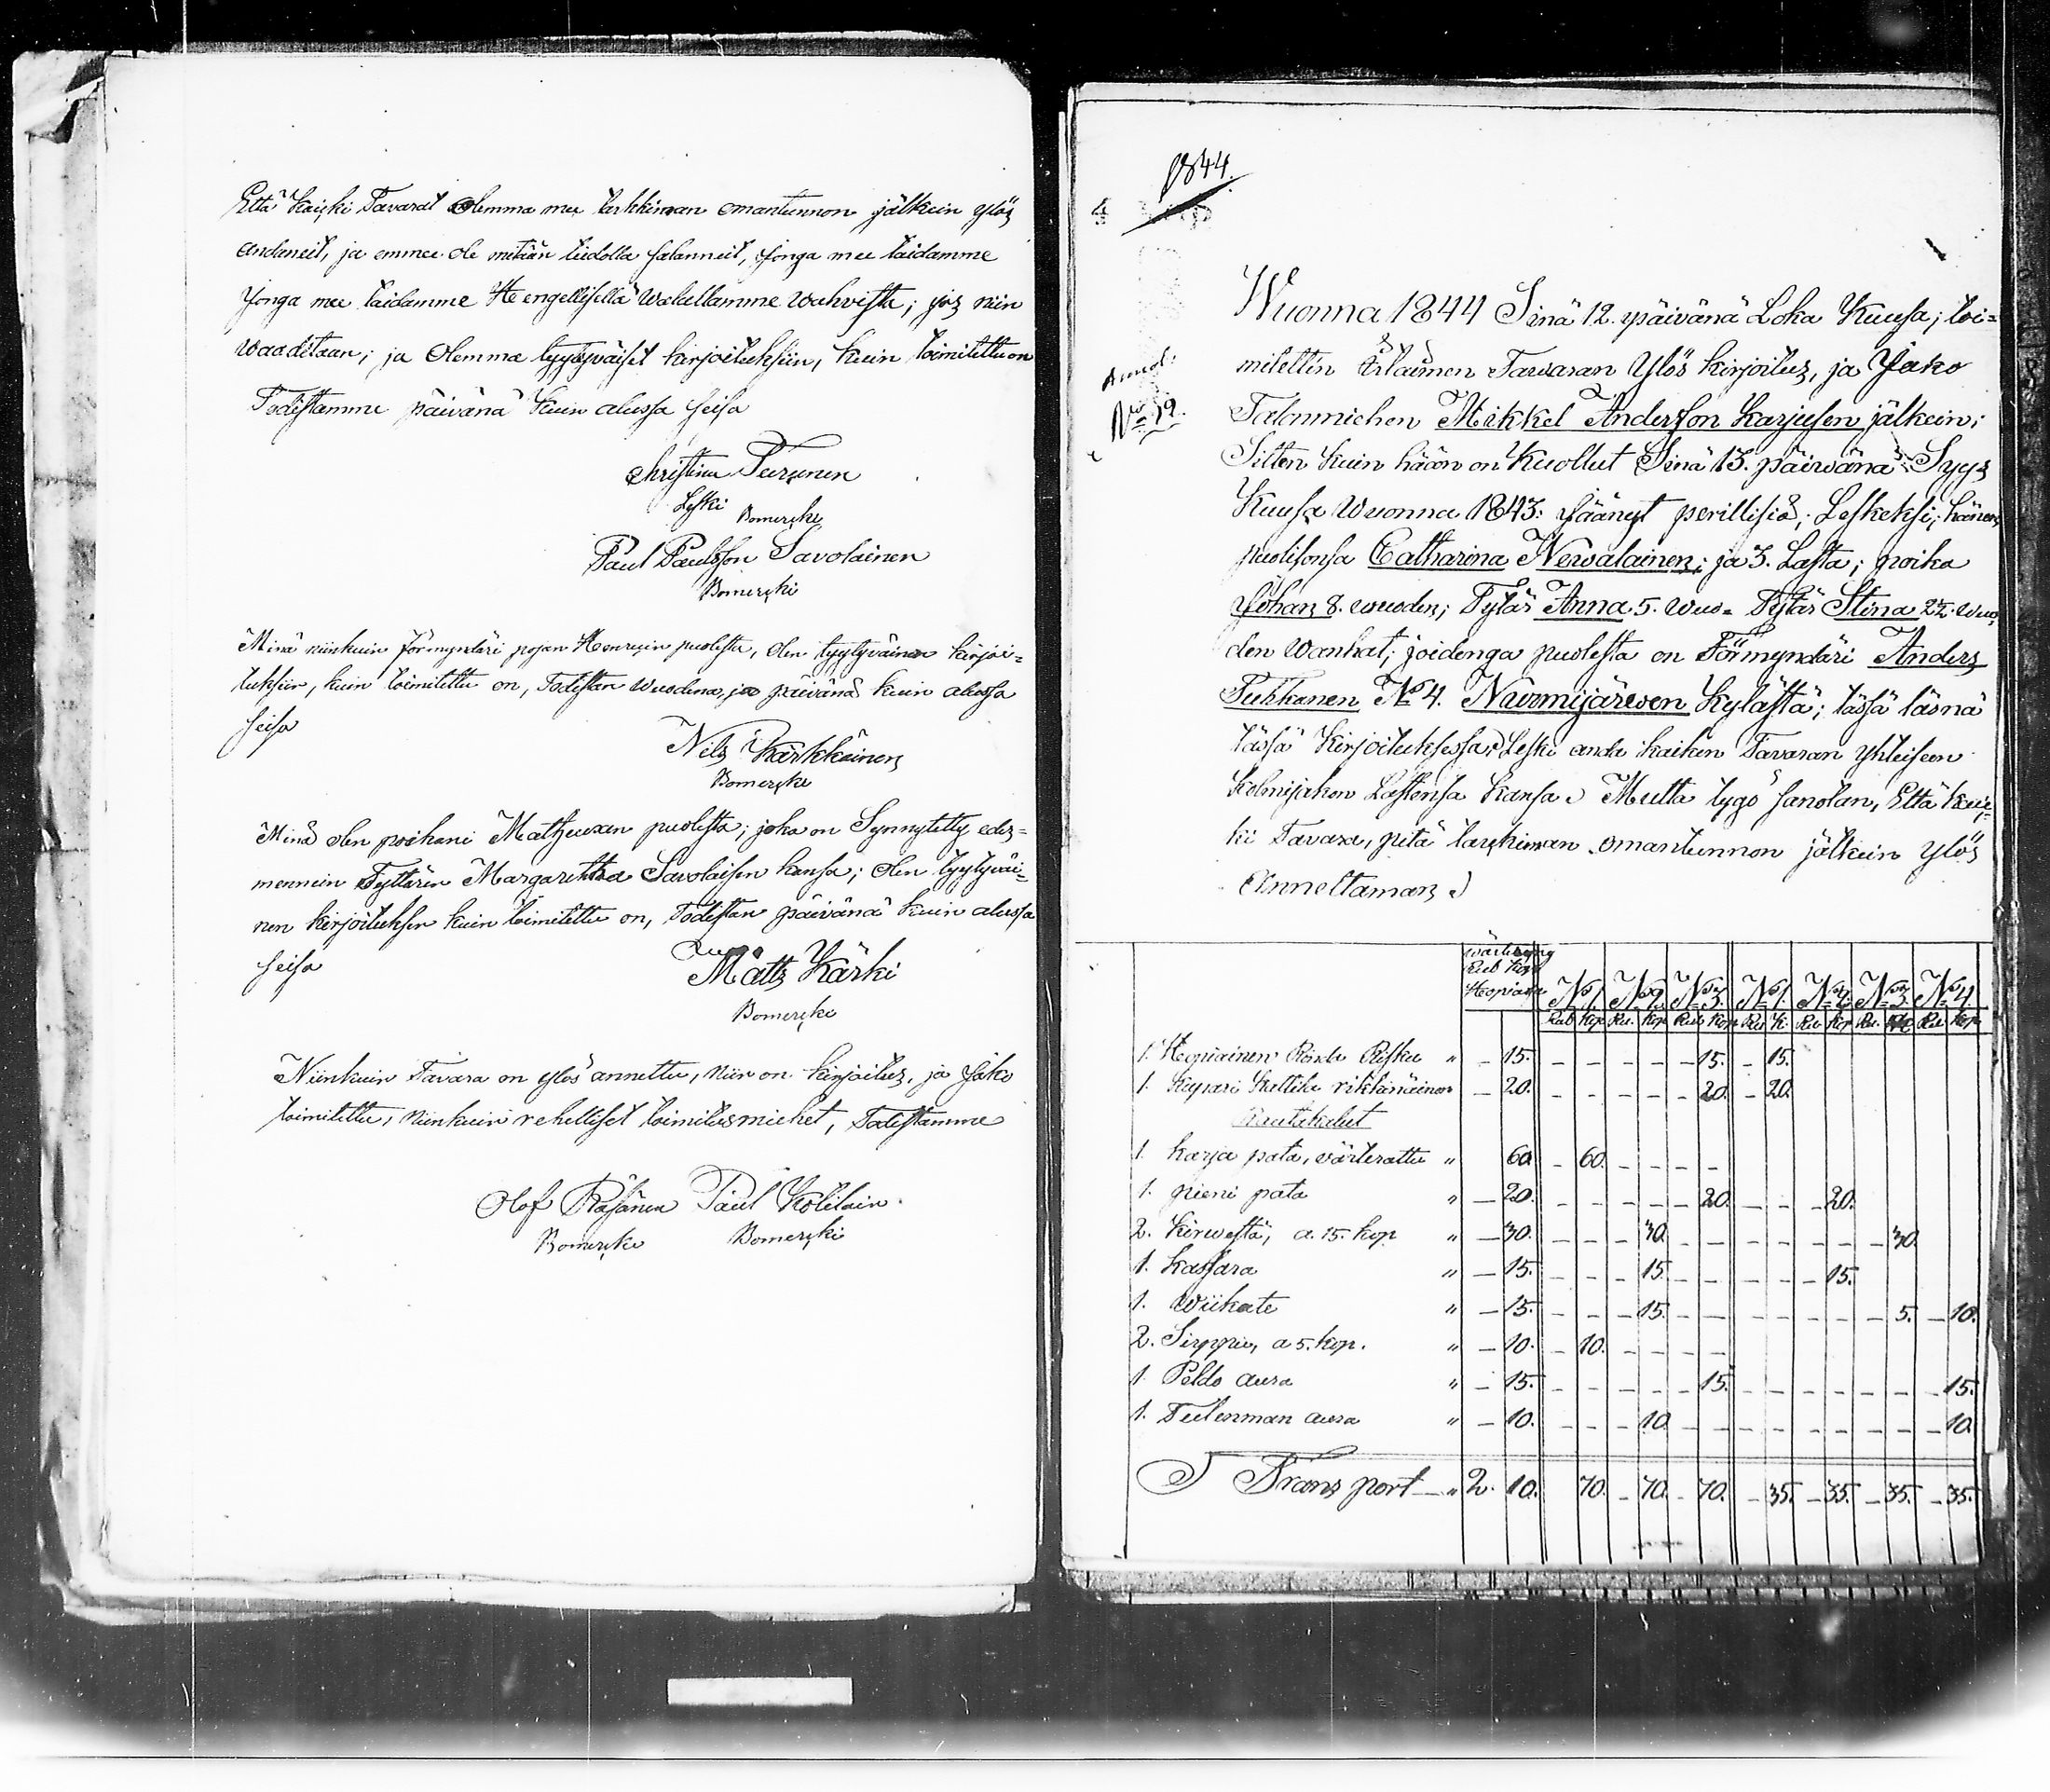 Että kaiki Tavarat olemma me tarkkiman omantunnon jälkein ylös
andaneit, ja emmee ole mitään tiedolla salanneit, jonga mee taidamme
jonga mee taidamme Heengellisellä walallamme wahvista; jos niin
waaditaan; ja Olemma tyytywäiset kirjoituksiin, kuin toimitettu on
Todistamme päivänä kuin alussa seisa
Christina Turunen
Leski Bomerki
Paul Paulsson Savolainen
Bomerki
Minä niinkuin förmyndäri pojan Henricin puolesta, olen tyytyväinen kirjoi=
tuksiin, kuin toimitettu on, Todistan wuodena, ja päivänä kuin alussa
seisa
Nils Kärkkäinen
Bomerki
Minä olen poikani Matheuxen puolesta; joka on Synnytetty edes=
mennein Tyttären Margarehtta Savolaisen kansa; olen tyytyväi=
nen kirjoituksen kuin toimitettu on, Todistan päivänä kuin alussa
seisa
Matts Kärki
Bomerki
Niinkuin Tavara on ylös annettu, niin on kirjoitus, ja Jako
toimitettu, niinkuin rehelliset toimitusmiehet, Todistamme
Olof Räsänen Paul Kolilain
Bomerki Bomerki
1844.
4
No 12.
Wuonna 1844 Sinä 12. päivänä Loka Kuusa; toi=
mitettin Irtaimen Tawaran Ylös kirjoitus, ja Jako
Talonmiehen Mikkel Andersson Karjusen jälkein;
Sitten kuin hään on Kuollut Sinä 13. päiwänä Syys
Kuusa Wuonna 1843: Jäänyt perillisiä; Leskeksi; hänen
puolisonsa Catharina Newalainen; ja 3. Lasta; poika
Johan 8. wuoden; Tytär Anna 5. wuo= Tytär Stina 2½ wuo,
den Wanhat; joidenga puolesta on Förmyndäri Anders
Tukkanen No 4. Nurmijärwen Kylästä; tässä läsnä
tässä Kirjoituksessa; Leski anda kaiken Tavaran yhteiseen
kolmijakon Lastensa kansa. Mutta tygö sanotan, Että kai,
ki Tavara, pitä tarkiman omantunnon jälkein ylös
Annettaman
wärdering
Rub Kop
Hopiasa No 1. No 2. No 3. No 1. No 2. No 3. No 4.
Rub Kop Ru. Kop Rub Kop Ru K. Ru Kop Ru. Ru Kop
1. Hopiainen Rinda Risku " – 15. – – – – – 15. – 15.
1. Kupari Kattila rikkinäinen – 20. – – – – – 20. – 20.
Rautakalut
1. karja pata, wärterattu " 60. – 60. – – – –
1. pieni pata " – 20. – – – – – 20. – – – 20.
2. Kirwestä, a. 15. kop " – 30. – – – 30. – – – – – – – 30.
1. Kassara " – 15. – – – 15. – – – – – 15.
1. Wiikate " – 15. – – – 15. – – – – – – – 5. – 10.
2. Sirppiä, a 5. kop. " – 10. – 10. – – – –
1. Peldo aura " – 15. – – – – – 15. – – – – – – – 15.
1. Tulenman aura " – 10. – – – 10. – – – – – – – – – 10.
Transport – " 2. 10. 70. – 70. – 70. – 35. – 35. – 35. – 35.